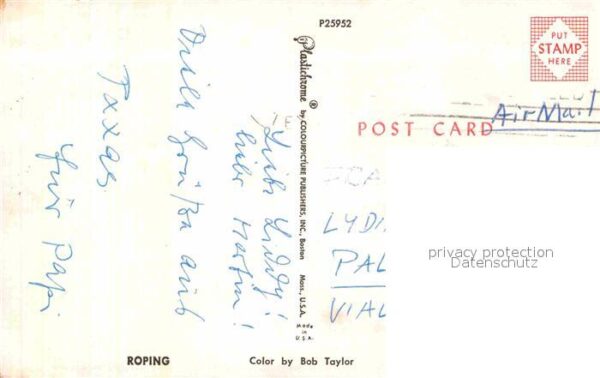 P25952
PUT
STAMP
HERE
Air Mail
POST CARD
Plastichrome ® by COLOURPICTURE PUBLISHERS, INC., Boston Mass., U.S.A.
Made
in
U.S.A.
Liebe Liddy!
lieber Martin!
Viele Grüße aus
Texas
Euer Papi
LYDI
PAL
VIAL
privacy protection
Datenschutz
ROPING
Color by Bob Taylor